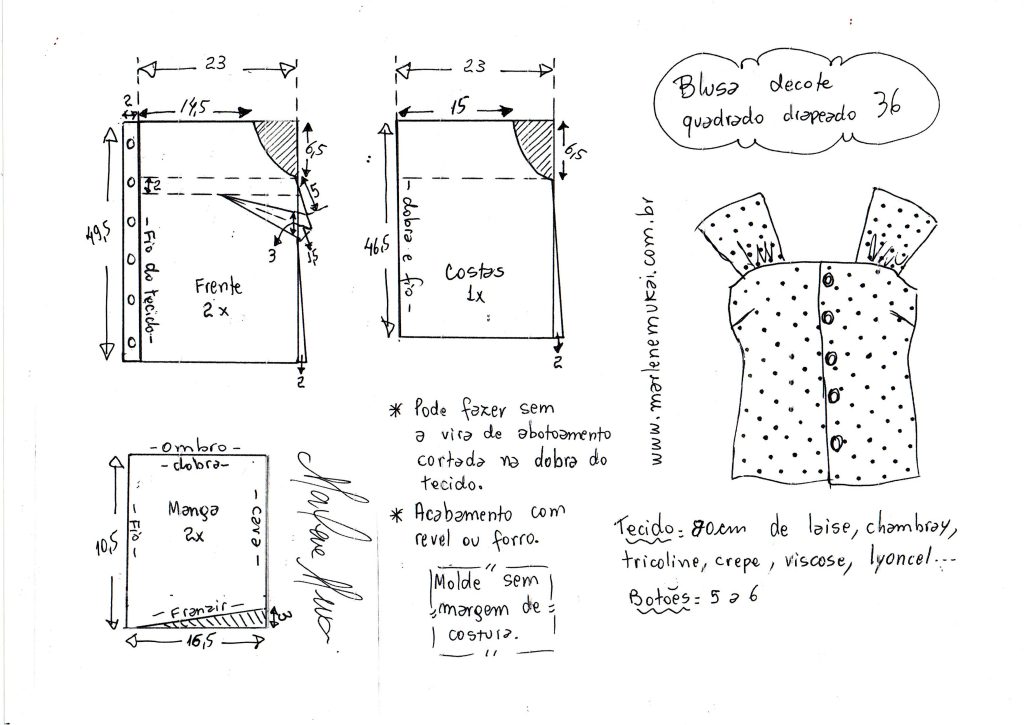 Blusa decote
quadrado drapeado 36
23
2
14,5
6,5
2
5
3
1,5
49,5
- Fio do tecido -
Frente
2x
2
23
15
6,5
46,5
- dobra e fio -
Costas
1x
2
www.marlenemukai.com.br
- ombro -
- dobra -
Manga
2x
- Fio -
- cava -
10,5
- Franzir -
3
16,5
* Pode fazer sem
a vira de abotoamento
cortada na dobra do
tecido.
* Acabamento com
revel ou forro.
Molde sem
margem de
costura.
Tecido: 80cm de laise, chambray,
tricoline, crepe, viscose, lyoncel...
Botões: 5 a 6